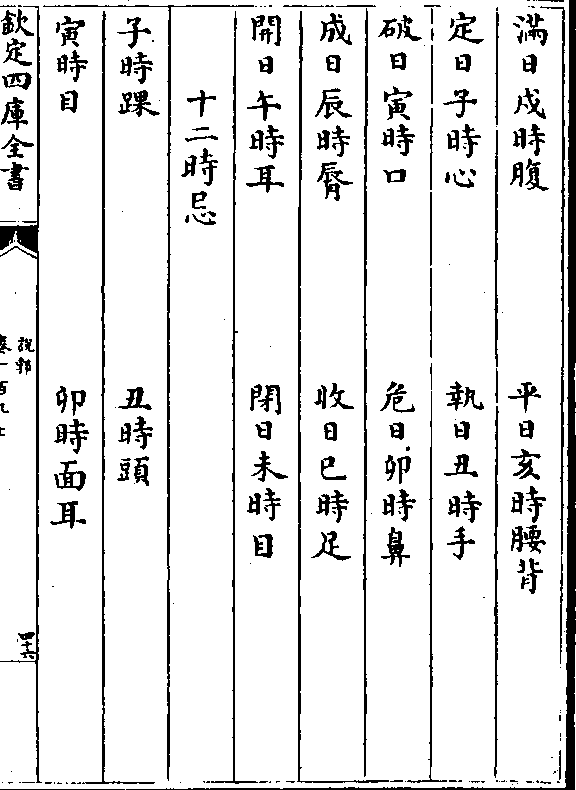 滿日戌時腹　平日亥時腰背
定日子時心　執日丑時手
破日寅時口　危日卯時鼻
成日辰時脣　收日巳時足
開日午時耳　閉日未時目
十二時忌
子時踝　丑時頭
寅時目　卯時面耳
欽定四庫全書
說郛
卷一百九上
四十六